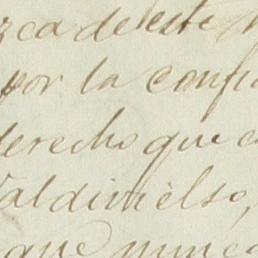 zca deleste
por la confi
derecho que e
Valdimèlso,
que nunca